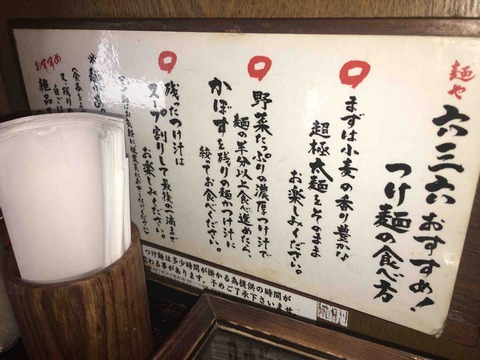 麺や 六三六 おすすめ!
つけ麺の食べ方
まずは小麦の香り豊かな
超極太麺をそのまま
お楽しみください。
野菜たっぷりの濃厚つけ汁で
麺の半分以上食べ進めたら、
かぼすを残りの麺かつけ汁に
絞ってお食べください。
残ったつけ汁は
スープ割りして最後の一滴まで
お楽しみください。
おすすめ
つけ麺は多少時間が掛かる為提供の時間が
事があります。予めご了承下さいませ